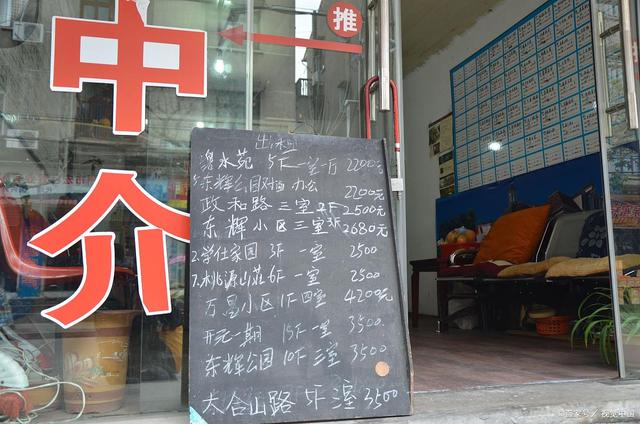 中
介
推
出租
绿水苑 5F 一室一厅 2200元
东辉公园对面 办公 2200元
政和路 三室 2F 2500元
东辉小区 三室 3F 2680元
2.学仕家园 3F 一室 2500
7.桃源山莊 6F 一室 2500
万昌小区 1F 四室 4200元
开元一期 15F 一室 3500.
东辉公园 10F 三室 3500
太合山路 5F 三室 3500
百家号/视觉中国